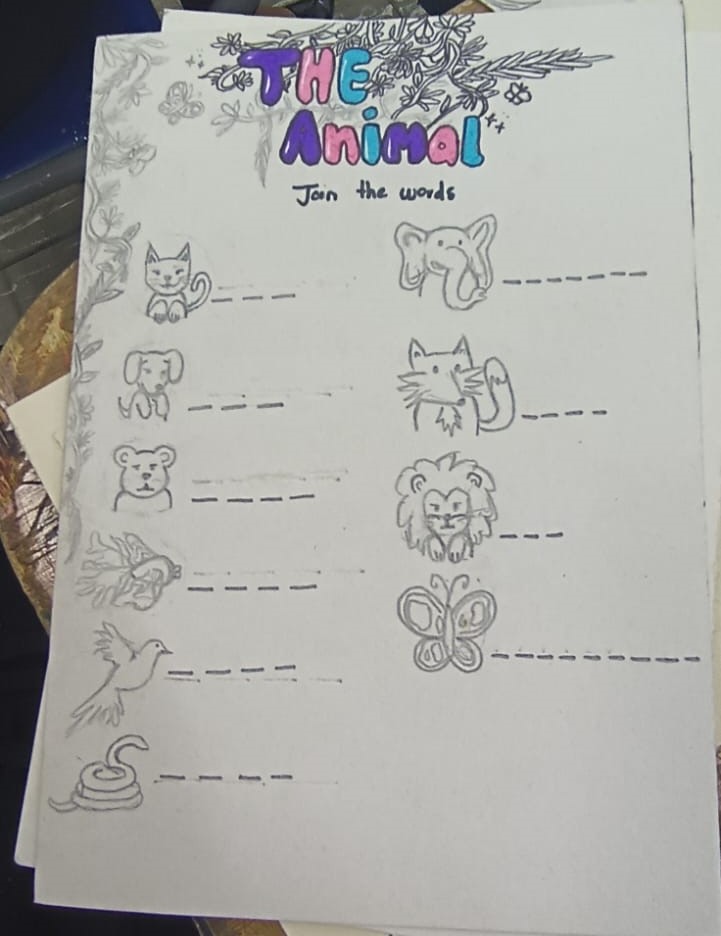 THE
Animal
Join the words